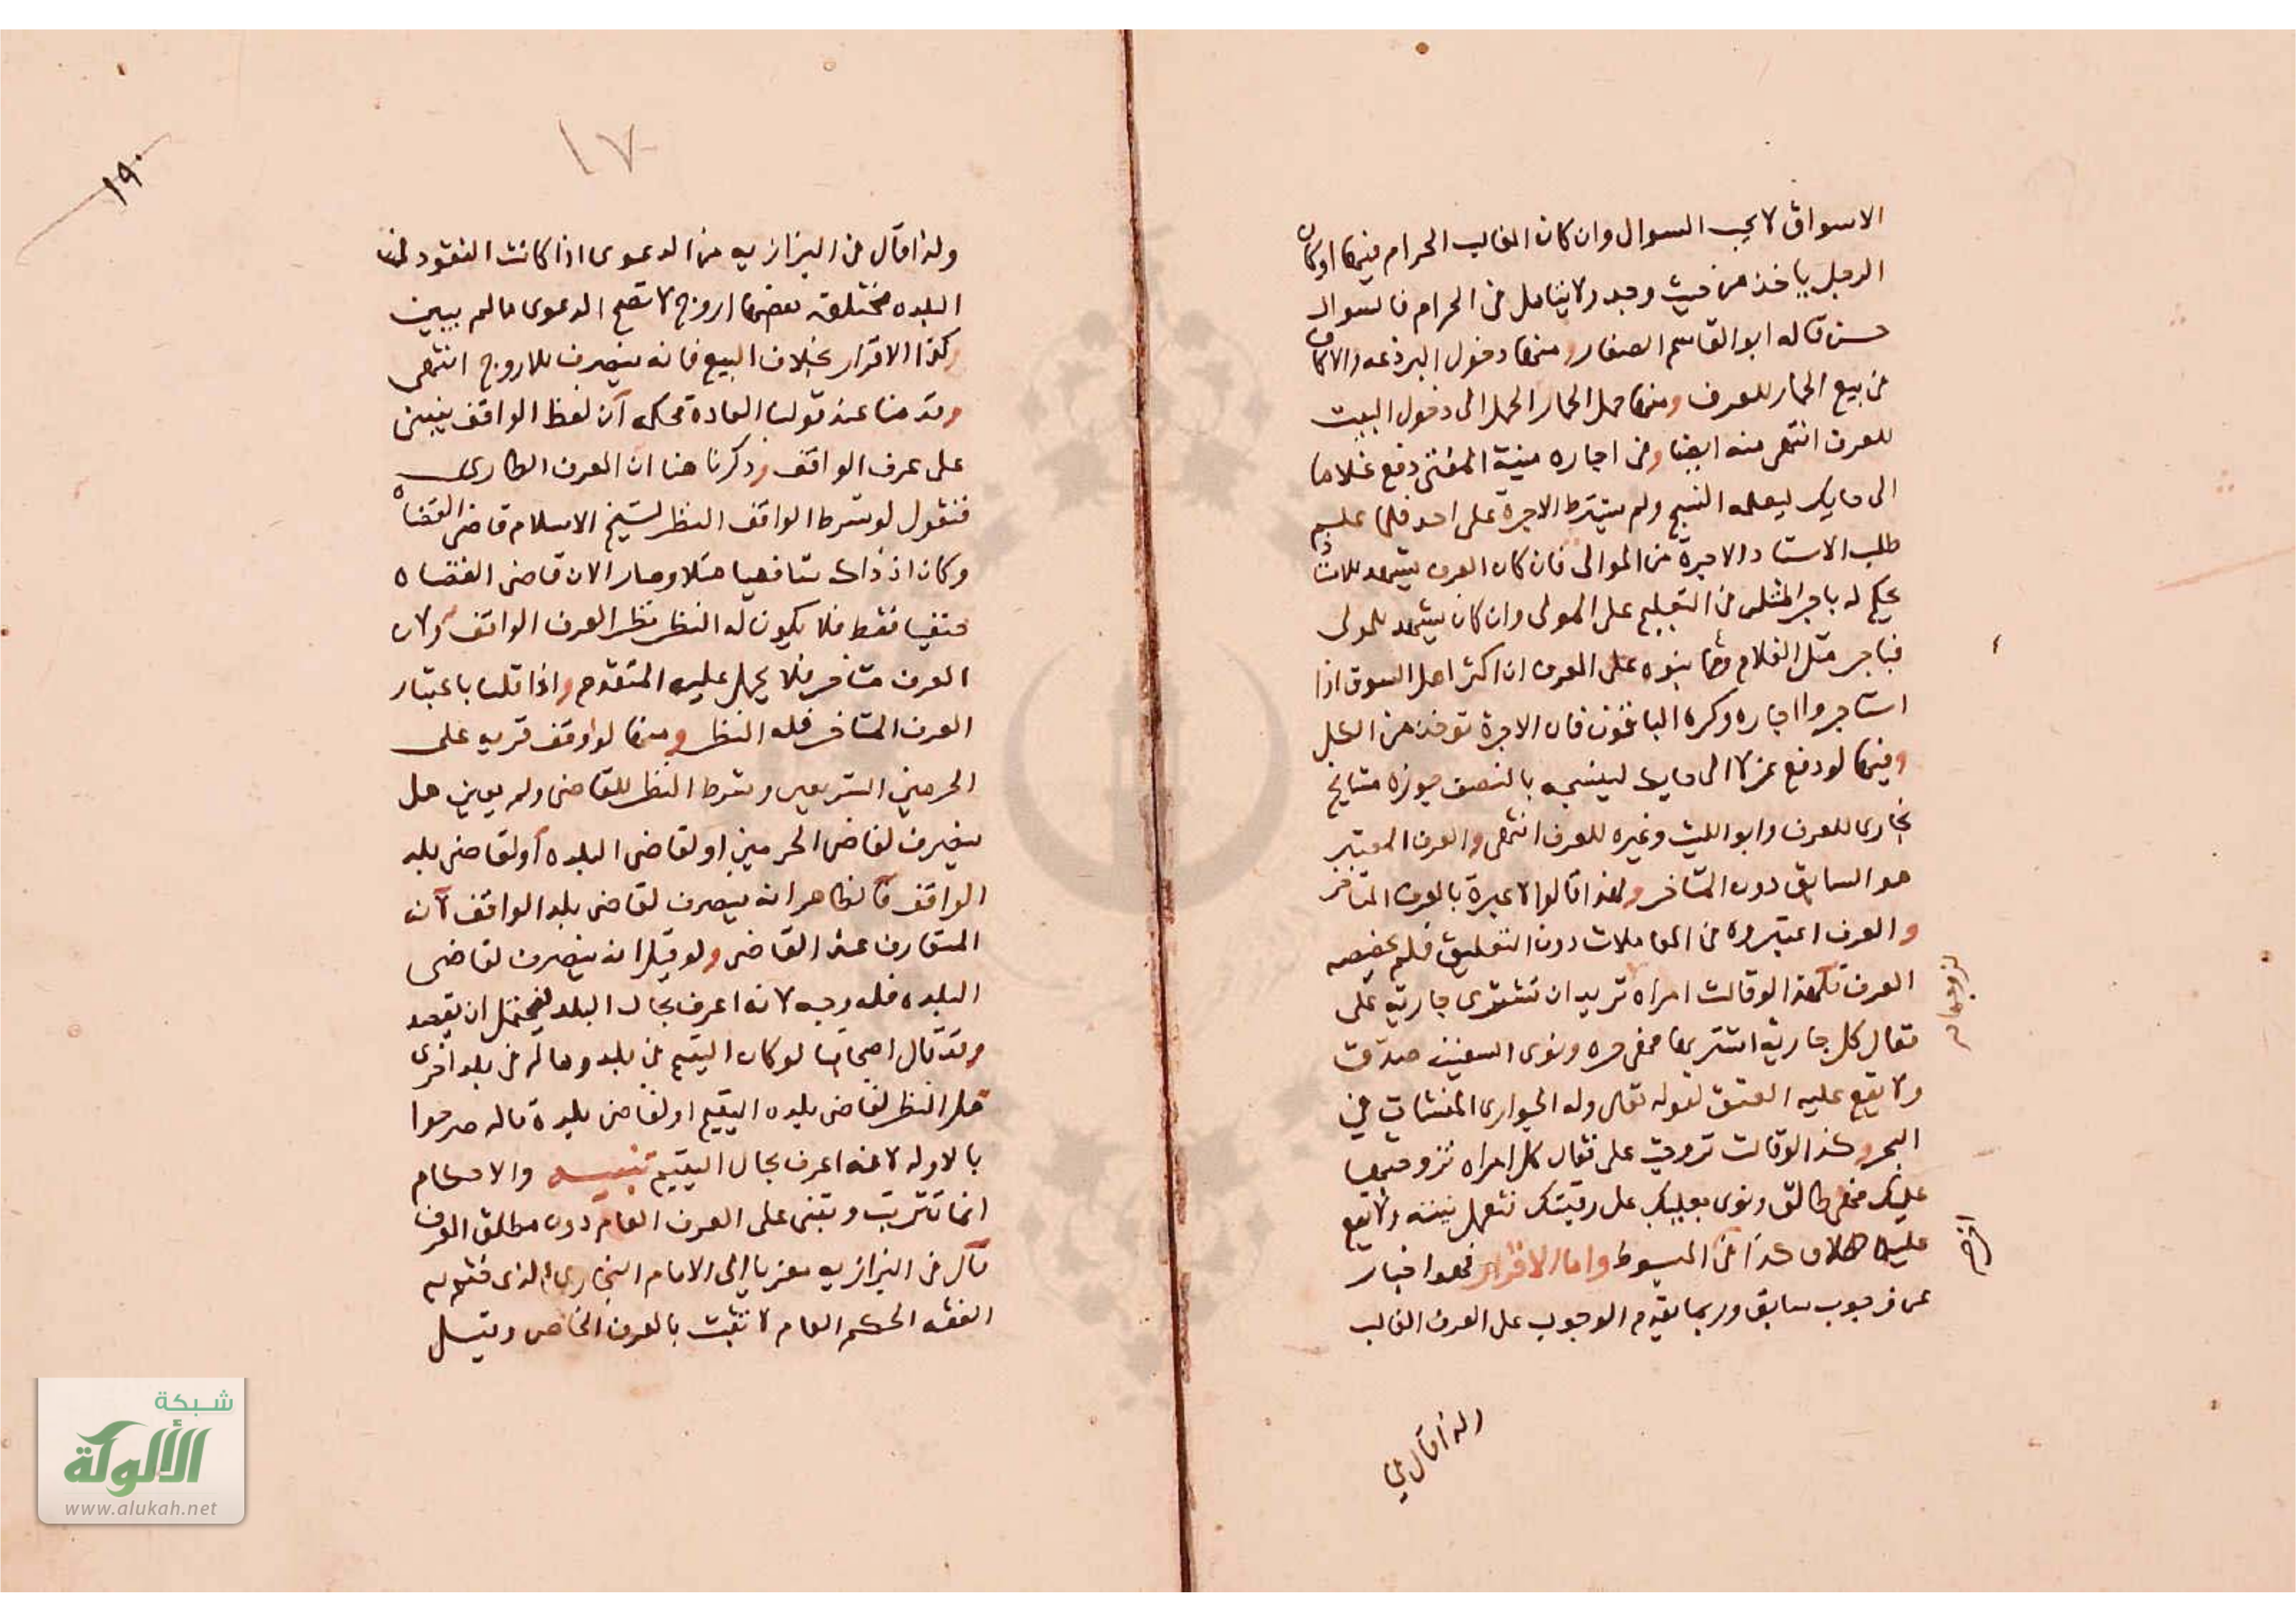 الاسواق لا يجب السوال وان كان الغالب الحرام فيها او كان
الرجل ياخذ من حيث وجد ولا يتامل في الحرام فالسوال
حسن قاله ابو القاسم الصفار ومنها دخول البرذعه والاكاف
في بيع الحمار للعرف ومنها حمل الحمار الحمل الى دخول البيت
للعرف انتهى منه ايضا وفي اجاره منية المفتي دفع غلاما
الى حايك ليعلمه النسج ولم يشترط الاجرة على احد فلما علم
طلب الاستاد الاجرة من الموالى فان كان العرف يشهد للاستاذ
يحكم له باجر المثل في التعليم على المولى وان كان يشهد للمولى
فباجر مثل الغلام ومما بنوه على العرف ان اكثر اهل السوق اذا
استاجروا اجاره وكره الباقون فان الاجرة توخذ من الكل
وفيها لو دفع غزلا الى حايك لينسجه بالنصف جوزه مشايخ
بخارى للعرف وابو الليث وغيره للعرف انتهى والعرف المعتبر
هو السابق دون المتاخر ولهذا قالوا لا عبرة بالعرف المتاخر
والعرف اعتبروه في المعاملات دون التعليق فلم يخصصه
العرف فلهذا لو قالت امراه تريد ان تشترى جارية على
فقال كل جارية اشتريها فهى حره ونوى السفينه صدقت
ولا يقع عليه العتق لقوله تعالى وله الجوارى المنشات في
البحر وكذا لو قالت تزوجت على فقال كل امراه تزوجتها
عليك فهى طالق ونوى بعليك على رقبتك فتعمل نيته ولا يقع
عليه الطلاق كذا في المبسوط واما الاقرار فهو اخبار
عن وجوب سابق وربما يقدم الوجوب على العرف الغالب
ولذا قال في
١٧
١٩٠
ولذا قال في البزازيه من الدعوى اذا كانت النقود في
البلده مختلفه بعضها اروج لا تصح الدعوى ما لم يبين
وكذا الاقرار بخلاف البيع فانه ينصرف للاروج انتهى
وقدمنا عند قولنا العادة محكمه ان لفظ الواقف ينبنى
على عرف الواقف وذكرنا هنا ان العرف الطارى
فنقول لو شرط الواقف النظر لشيخ الاسلام قاضى القضاه
وكان اذ ذاك شافعيا مثلا وصار الان قاضى القضاه
حنفيا فقط فلا يكون له النظر نظرا لعرف الواقف ولان
العرف متاخر فلا يحمل عليه المتقدم واذا قلنا باعتبار
العرف المتاخر فله النظر ومنها لو اوقف قريه على
الحرمين الشريفين وشرط النظر للقاضى ولم يعين هل
ينصرف لقاضى الحرمين او لقاضى البلده او لقاضى بلد
الواقف فالظاهر انه ينصرف لقاضى بلد الواقف لانه
المتعارف عنه القاضى ولو قيل انه ينصرف لقاضى
البلده فله وجه لانه اعرف بحال البلد فيحتمل ان يقصد
وقد قال اصحابنا لو كان اليتيم في بلد وماله في بلد اخرى
هل النظر لقاضى بلده اليتيم او لقاضى بلدة ماله صرحوا
بالاول لانه اعرف بحال اليتيم تنبيه والاحكام
انما تترتب وتبنى على العرف العام دون مطلق العرف
قال في البزازيه معزيا الى الامام البخارى الذى ختم به
الفقه الحكم العام لا تثبت بالعرف الخاص وقيل
شبكة
الألوكة
www.alukah.net